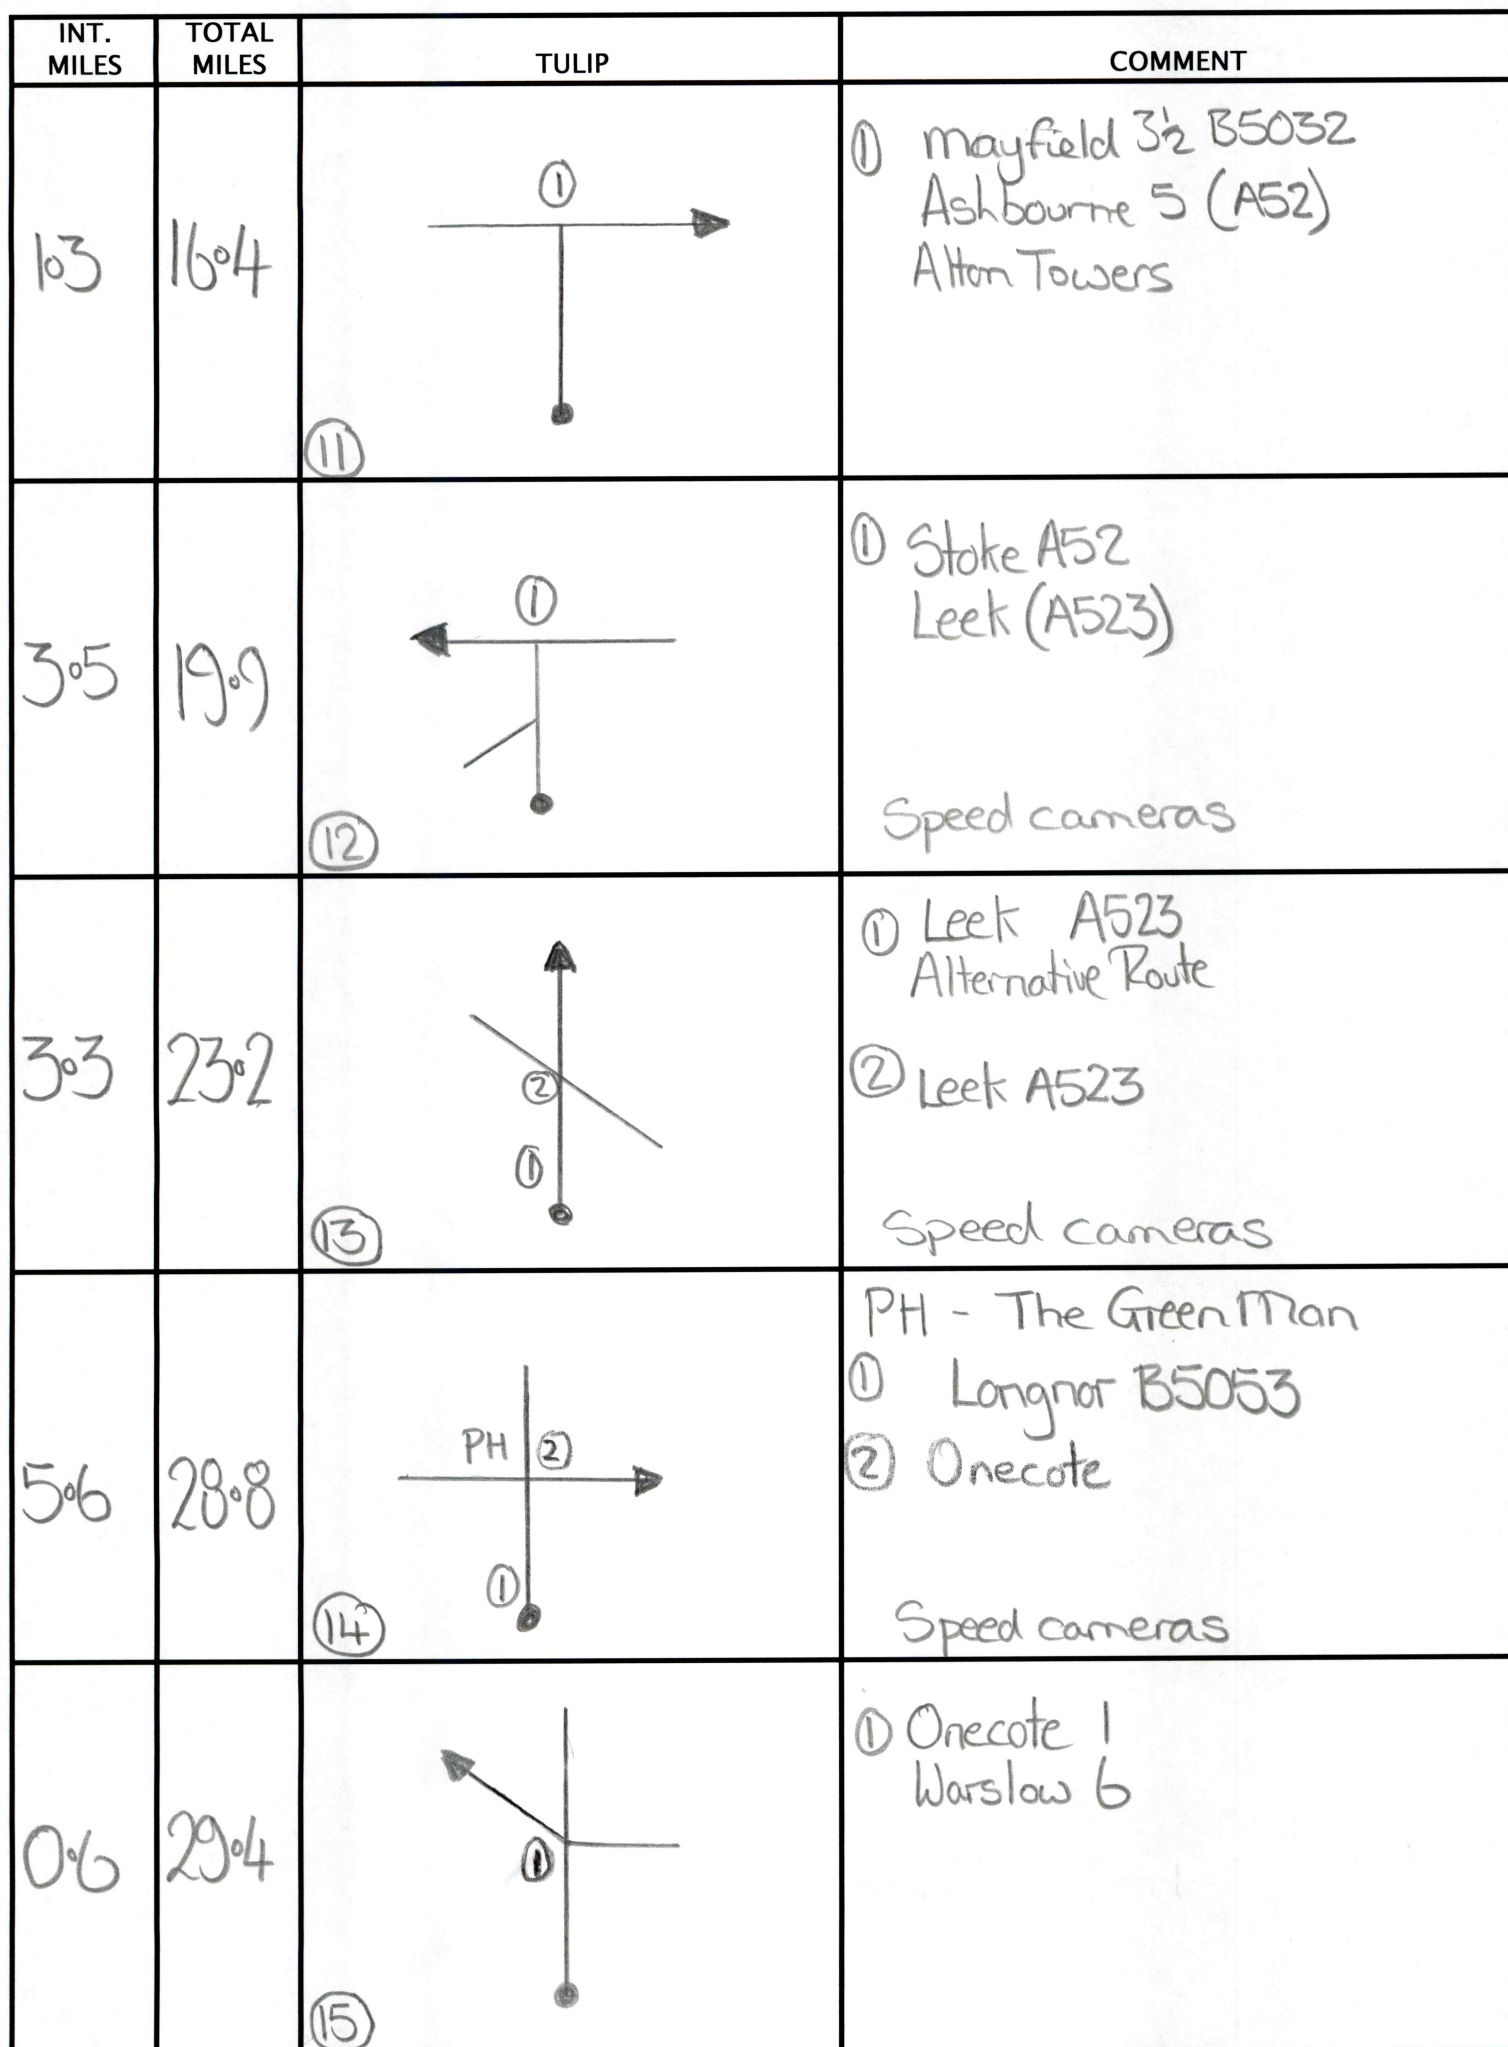 INT. MILES
TOTAL MILES
TULIP
COMMENT
1.3
16.4
①
⑪
① Mayfield 3½ B5032
Ashbourne 5 (A52)
Alton Towers
3.5
19.9
①
⑫
① Stoke A52
Leek (A523)
Speed cameras
3.3
23.2
②
①
⑬
① Leek A523
Alternative Route
② Leek A523
Speed cameras
5.6
28.8
PH ②
①
⑭
PH - The Green Man
① Longnor B5053
② Onecote
Speed cameras
0.6
29.4
①
⑮
① Onecote 1
Warslow 6